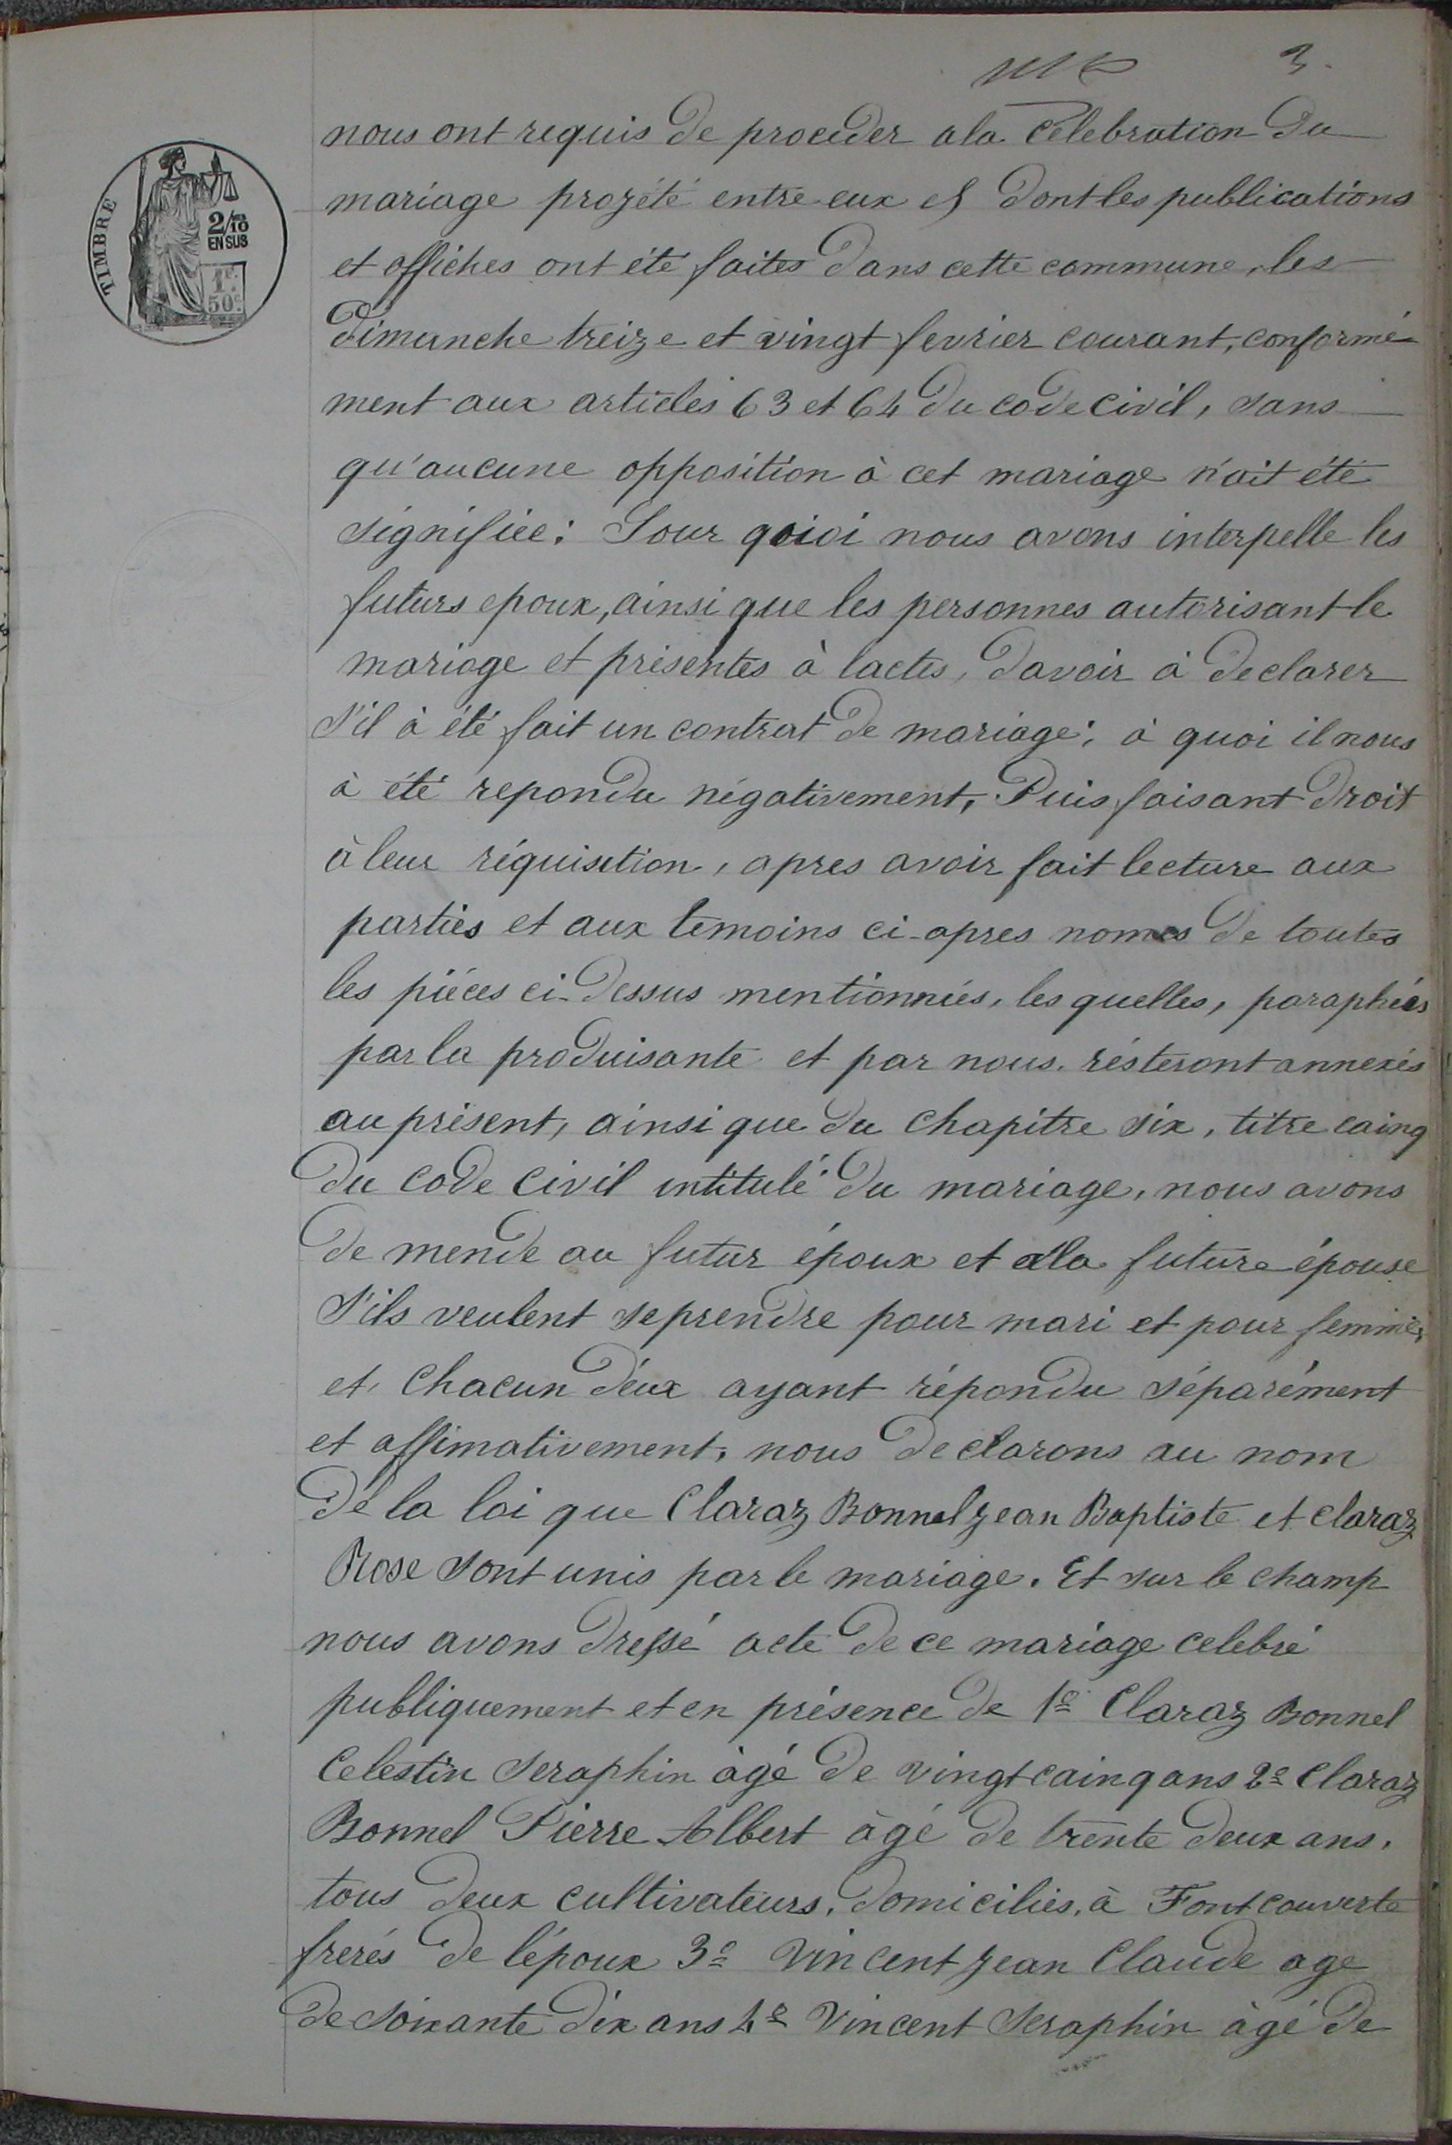 3.
TIMBRE
2/10 EN SUS
1F. 50C.
nous ont requis de proceder ala celebration du
mariage projété entre eux et dont les publications
et affiches ont été faites dans cette commune, les
dimanche treize et vingt fevrier courant, conformé-
ment aux articles 63 et 64 du code civil, sans
qu'aucune opposition à cet mariage n'ait été
signifiée; Sour qoioi nous avons interpelle les
futurs epoux, ainsi que les personnes autorisant le
mariage et présentes à lactes, davoir à declarer
s'il à été fait un contrat de mariage; à quoi il nous
à été repondu négativement, Puis faisant droit
à leur réquisition, apres avoir fait lecture aux
parties et aux temoins ci-apres nomes de toutes
les piéces ci-dessus mentionnées, les quelles, paraphées
par la produisante et par nous. résteront annexés
au présent, ainsi que du chapitre six, titre cainq
du code civil intitulé du mariage, nous avons
de mende au futur époux et ala future épouse
s'ils veulent se prendre pour mari et pour femmes
et chacun déux ayant répondu séparément
et affimativement, nous declarons au nom
dé la loi que Claraz Bonnel Jean Baptiste et Claraz
Rose sont unis par le mariage. Et sur le champ
nous avons dressé acte de ce mariage celebré
publiquement et en présence de 1e Claraz Bonnel
Celestin Seraphin àgé de vingt cainq ans 2e Claraz
Bonnel Pierre Albert àgé de trente deux ans.
tous deux cultivateurs, domiciliés, à Fontcouverte
frerés de lépoux 3e Vincent Jean Claude age
de soixante dix ans 4e Vincent Seraphin àgé de